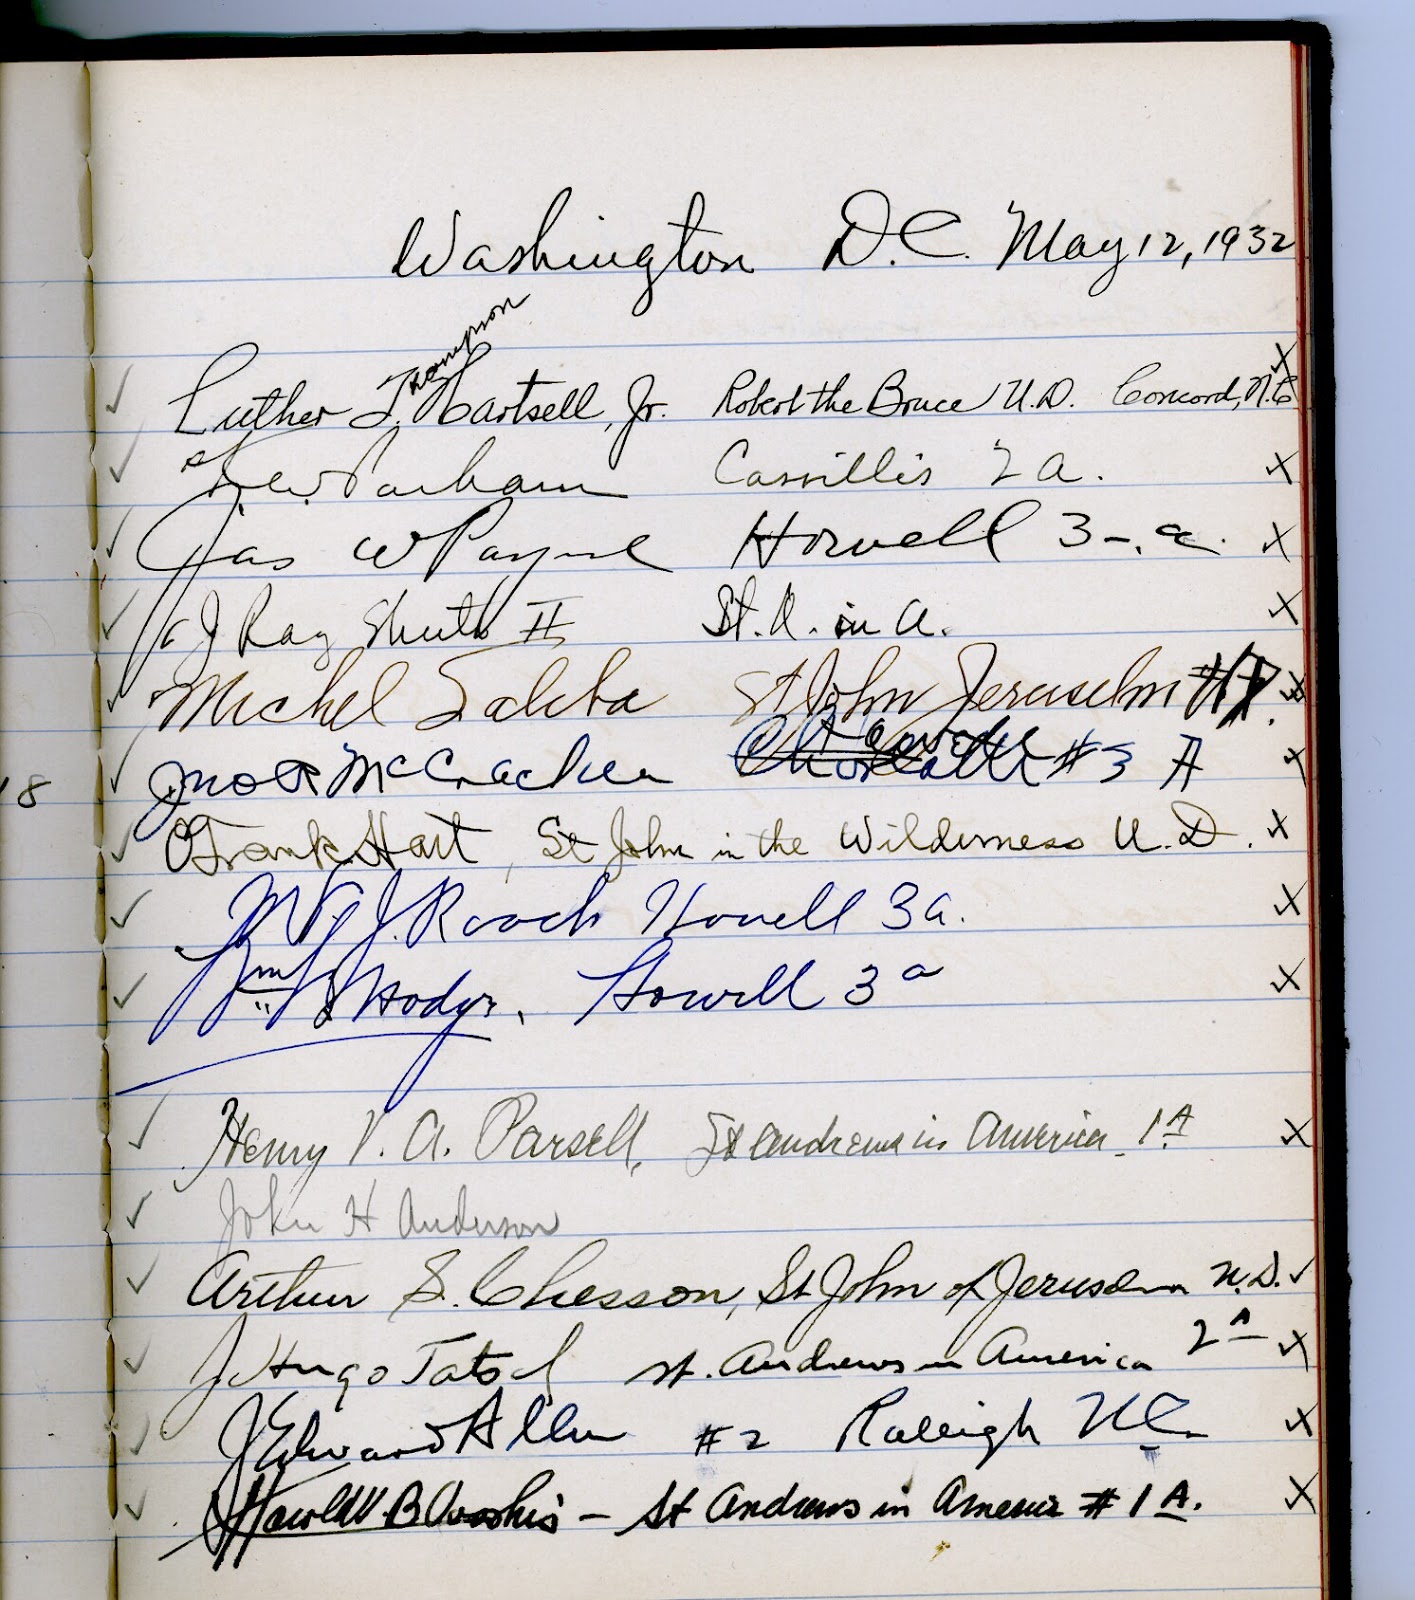 Washington D.C. May 12, 1932
Thompson
Luther T. Hartsell, Jr. Robert the Bruce U.D. Concord, N.C
Parham 2 a.
Jas W Payne Howell 3-. a.
J Ray Shute II St. A. in A.
Michel Saleba St John Jeruselm
McCracken #3 A
Frank Hart, St John in the Wilderness U.D.
J. Roach Howell 3a.
Howell 3 a
Henry V. A. Parsell, St Andrews in America 1 A
18
John H Anderson
Arthur S. Chesson, St John of Jerusalem U.D.
J. Hugo Tatsch St. Andrews in America 2 A
J Edward Allen #2 Raleigh NC.
Harold V. B. Voorhis - St Andrews in America #1 A.